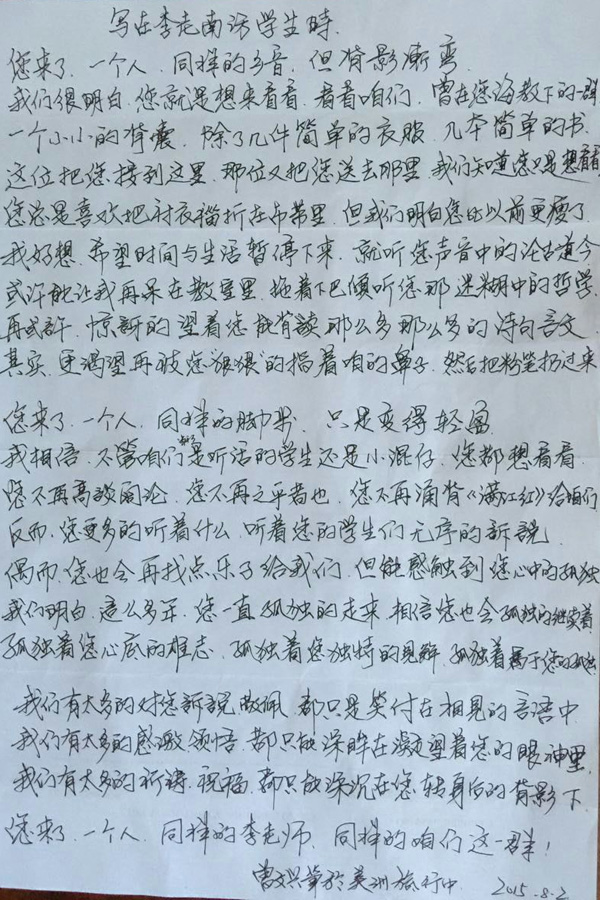 写在李老南访学生時.
您来了.一个人.同样的乡音.但背影渐变
我们很明白.您就是想来看看.看看咱们.曾在您海教下的一群
一个小小的背囊.除了几件简单的衣服.几本简单的书.
这位把您接到这里.那位又把您送去那里.我们知道您只是想看看
您总是喜欢把衬衣褶折在布带里.但我们明白您比以前更瘦了
我好想.希望时间与生活暂停下来.就听您声音中的论古道今
或许能让我再呆在教室里.拖着下巴倾听您那迷糊中的哲学.
再或許.惊訝的望着您能背读那么多那么多的诗句言文.
其实.还渴望再被您"狠狠"的指着咱的鼻子.然后把粉笔扔过来
您来了.一个人.同样的脚步.只是变得轻盈
我相信.不管咱们都是听话的学生还是小混仔.您都想看看.
您不再高谈阔论.您不再之乎者也.您不再诵背《满江红》给咱们
反而.您更多的听着什么.听着您的学生们无序的訴說
偶而.您也会再找点乐子给我们.但能感触到您心中的孤独
我们明白.這么多年.您一直孤独的走来.相信您也会孤独的继续着
孤独着您心底的雄志.孤独着您独特的见解.孤独着属于您的孤独
我们有太多的对您訴說敬佩.都只是笑付在相見的言语中
我们有太多的感激领悟.都只能深眸在凝望着您的眼神里.
我们有太多的祈祷.祝福.都只能深沉在您转身后的背影下
您来了.一个人.同样的李老师.同样的咱们这一群!
曾文兴筆於美洲旅行中. 2015.8.2